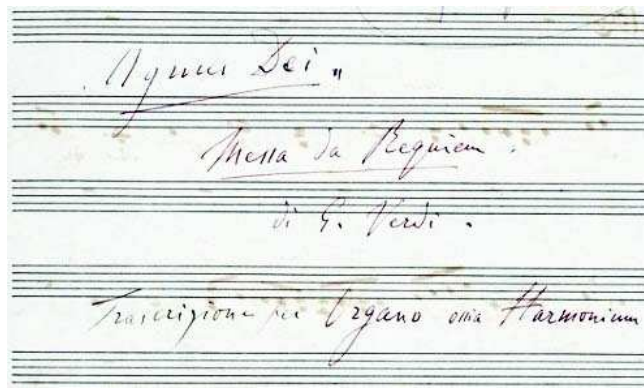 Agnus Dei "
Messa da Requiem .
di G. Verdi .
Trascrizione per Organo ossia Harmonium